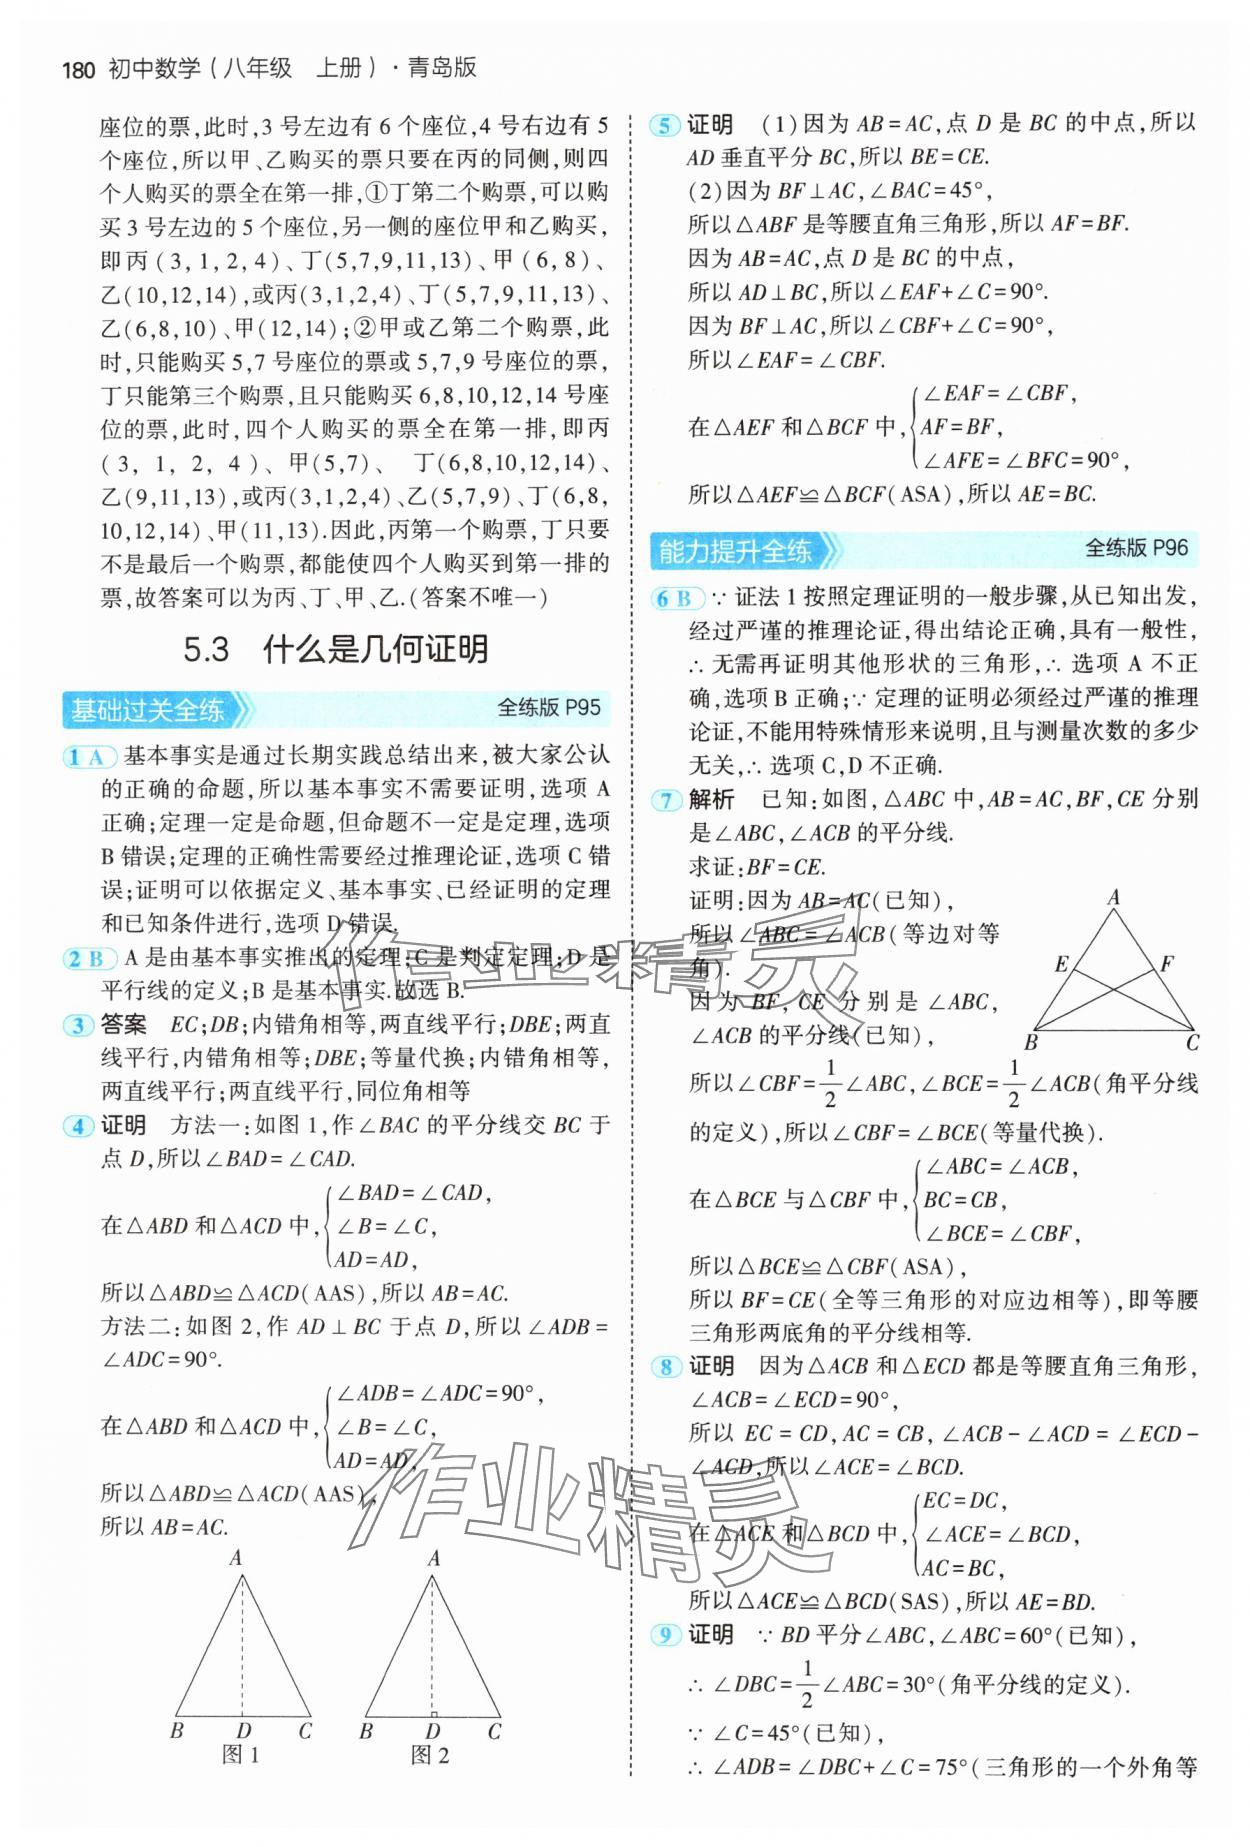 180 初中数学(八年级 上册)·青岛版
座位的票,此时,3 号左边有 6 个座位,4 号右边有 5
个座位,所以甲、乙购买的票只要在丙的同侧,则四
个人购买的票全在第一排,①丁第二个购票,可以购
买 3 号左边的 5 个座位,另一侧的座位甲和乙购买,
即丙(3,1,2,4)、丁(5,7,9,11,13)、甲(6,8)、
乙(10,12,14),或丙(3,1,2,4)、丁(5,7,9,11,13)、
乙(6,8,10)、甲(12,14);②甲或乙第二个购票,此
时,只能购买 5,7 号座位的票或 5,7,9 号座位的票,
丁只能第三个购票,且只能购买 6,8,10,12,14 号座
位的票,此时,四个人购买的票全在第一排,即丙
(3,1,2,4)、甲(5,7)、 丁(6,8,10,12,14)、
乙(9,11,13),或丙(3,1,2,4)、乙(5,7,9)、丁(6,8,
10,12,14)、甲(11,13).因此,丙第一个购票,丁只要
不是最后一个购票,都能使四个人购买到第一排的
票,故答案可以为丙、丁、甲、乙.(答案不唯一)
5.3 什么是几何证明
基础过关全练 全练版 P95
1 A 基本事实是通过长期实践总结出来,被大家公认
的正确的命题,所以基本事实不需要证明,选项 A
正确;定理一定是命题,但命题不一定是定理,选项
B 错误;定理的正确性需要经过推理论证,选项 C 错
误;证明可以依据定义、基本事实、已经证明的定理
和已知条件进行,选项 D 错误.
2 B A 是由基本事实推出的定理;C 是判定定理;D 是
平行线的定义;B 是基本事实.故选 B.
3 答案 EC;DB;内错角相等,两直线平行;DBE;两直
线平行,内错角相等;DBE;等量代换;内错角相等,
两直线平行;两直线平行,同位角相等
4 证明 方法一:如图 1,作∠BAC 的平分线交 BC 于
点 D,所以∠BAD=∠CAD.
∠BAD=∠CAD,
在△ABD 和△ACD 中, ∠B=∠C,
AD=AD,
所以△ABD≌△ACD(AAS),所以 AB=AC.
方法二:如图 2,作 AD⊥BC 于点 D,所以∠ADB=
∠ADC=90°.
∠ADB=∠ADC=90°,
在△ABD 和△ACD 中, ∠B=∠C,
AD=AD,
所以△ABD≌△ACD(AAS),
所以 AB=AC.
A A
B D C B D C
图 1 图 2
5 证明 (1)因为 AB=AC,点 D 是 BC 的中点,所以
AD 垂直平分 BC,所以 BE=CE.
(2)因为 BF⊥AC,∠BAC=45°,
所以△ABF 是等腰直角三角形,所以 AF=BF.
因为 AB=AC,点 D 是 BC 的中点,
所以 AD⊥BC,所以∠EAF+∠C=90°.
因为 BF⊥AC,所以∠CBF+∠C=90°,
所以∠EAF=∠CBF.
∠EAF=∠CBF,
在△AEF 和△BCF 中, AF=BF,
∠AFE=∠BFC=90°,
所以△AEF≌△BCF(ASA),所以 AE=BC.
能力提升全练 全练版 P96
6 B ∵ 证法 1 按照定理证明的一般步骤,从已知出发,
经过严谨的推理论证,得出结论正确,具有一般性,
∴ 无需再证明其他形状的三角形,∴ 选项 A 不正
确,选项 B 正确;∵ 定理的证明必须经过严谨的推理
论证,不能用特殊情形来说明,且与测量次数的多少
无关,∴ 选项 C,D 不正确.
7 解析 已知:如图,△ABC 中,AB=AC,BF,CE 分别
是∠ABC,∠ACB 的平分线.
求证:BF=CE.
证明:因为 AB=AC(已知),
所以∠ABC=∠ACB(等边对等
角).
因为 BF,CE 分别是∠ABC,
∠ACB 的平分线(已知),
A
E F
B C
所以∠CBF=1/2∠ABC,∠BCE=1/2∠ACB(角平分线
的定义),所以∠CBF=∠BCE(等量代换).
∠ABC=∠ACB,
在△BCE 与△CBF 中, BC=CB,
∠BCE=∠CBF,
所以△BCE≌△CBF(ASA),
所以 BF=CE(全等三角形的对应边相等),即等腰
三角形两底角的平分线相等.
8 证明 因为△ACB 和△ECD 都是等腰直角三角形,
∠ACB=∠ECD=90°,
所以 EC=CD,AC=CB,∠ACB-∠ACD=∠ECD-
∠ACD,所以∠ACE=∠BCD.
EC=DC,
在△ACE 和△BCD 中, ∠ACE=∠BCD,
AC=BC,
所以△ACE≌△BCD(SAS),所以 AE=BD.
9 证明 ∵ BD 平分∠ABC,∠ABC=60°(已知),
∴ ∠DBC=1/2∠ABC=30°(角平分线的定义).
∵ ∠C=45°(已知),
∴ ∠ADB=∠DBC+∠C=75°(三角形的一个外角等
作业精灵
作业精灵